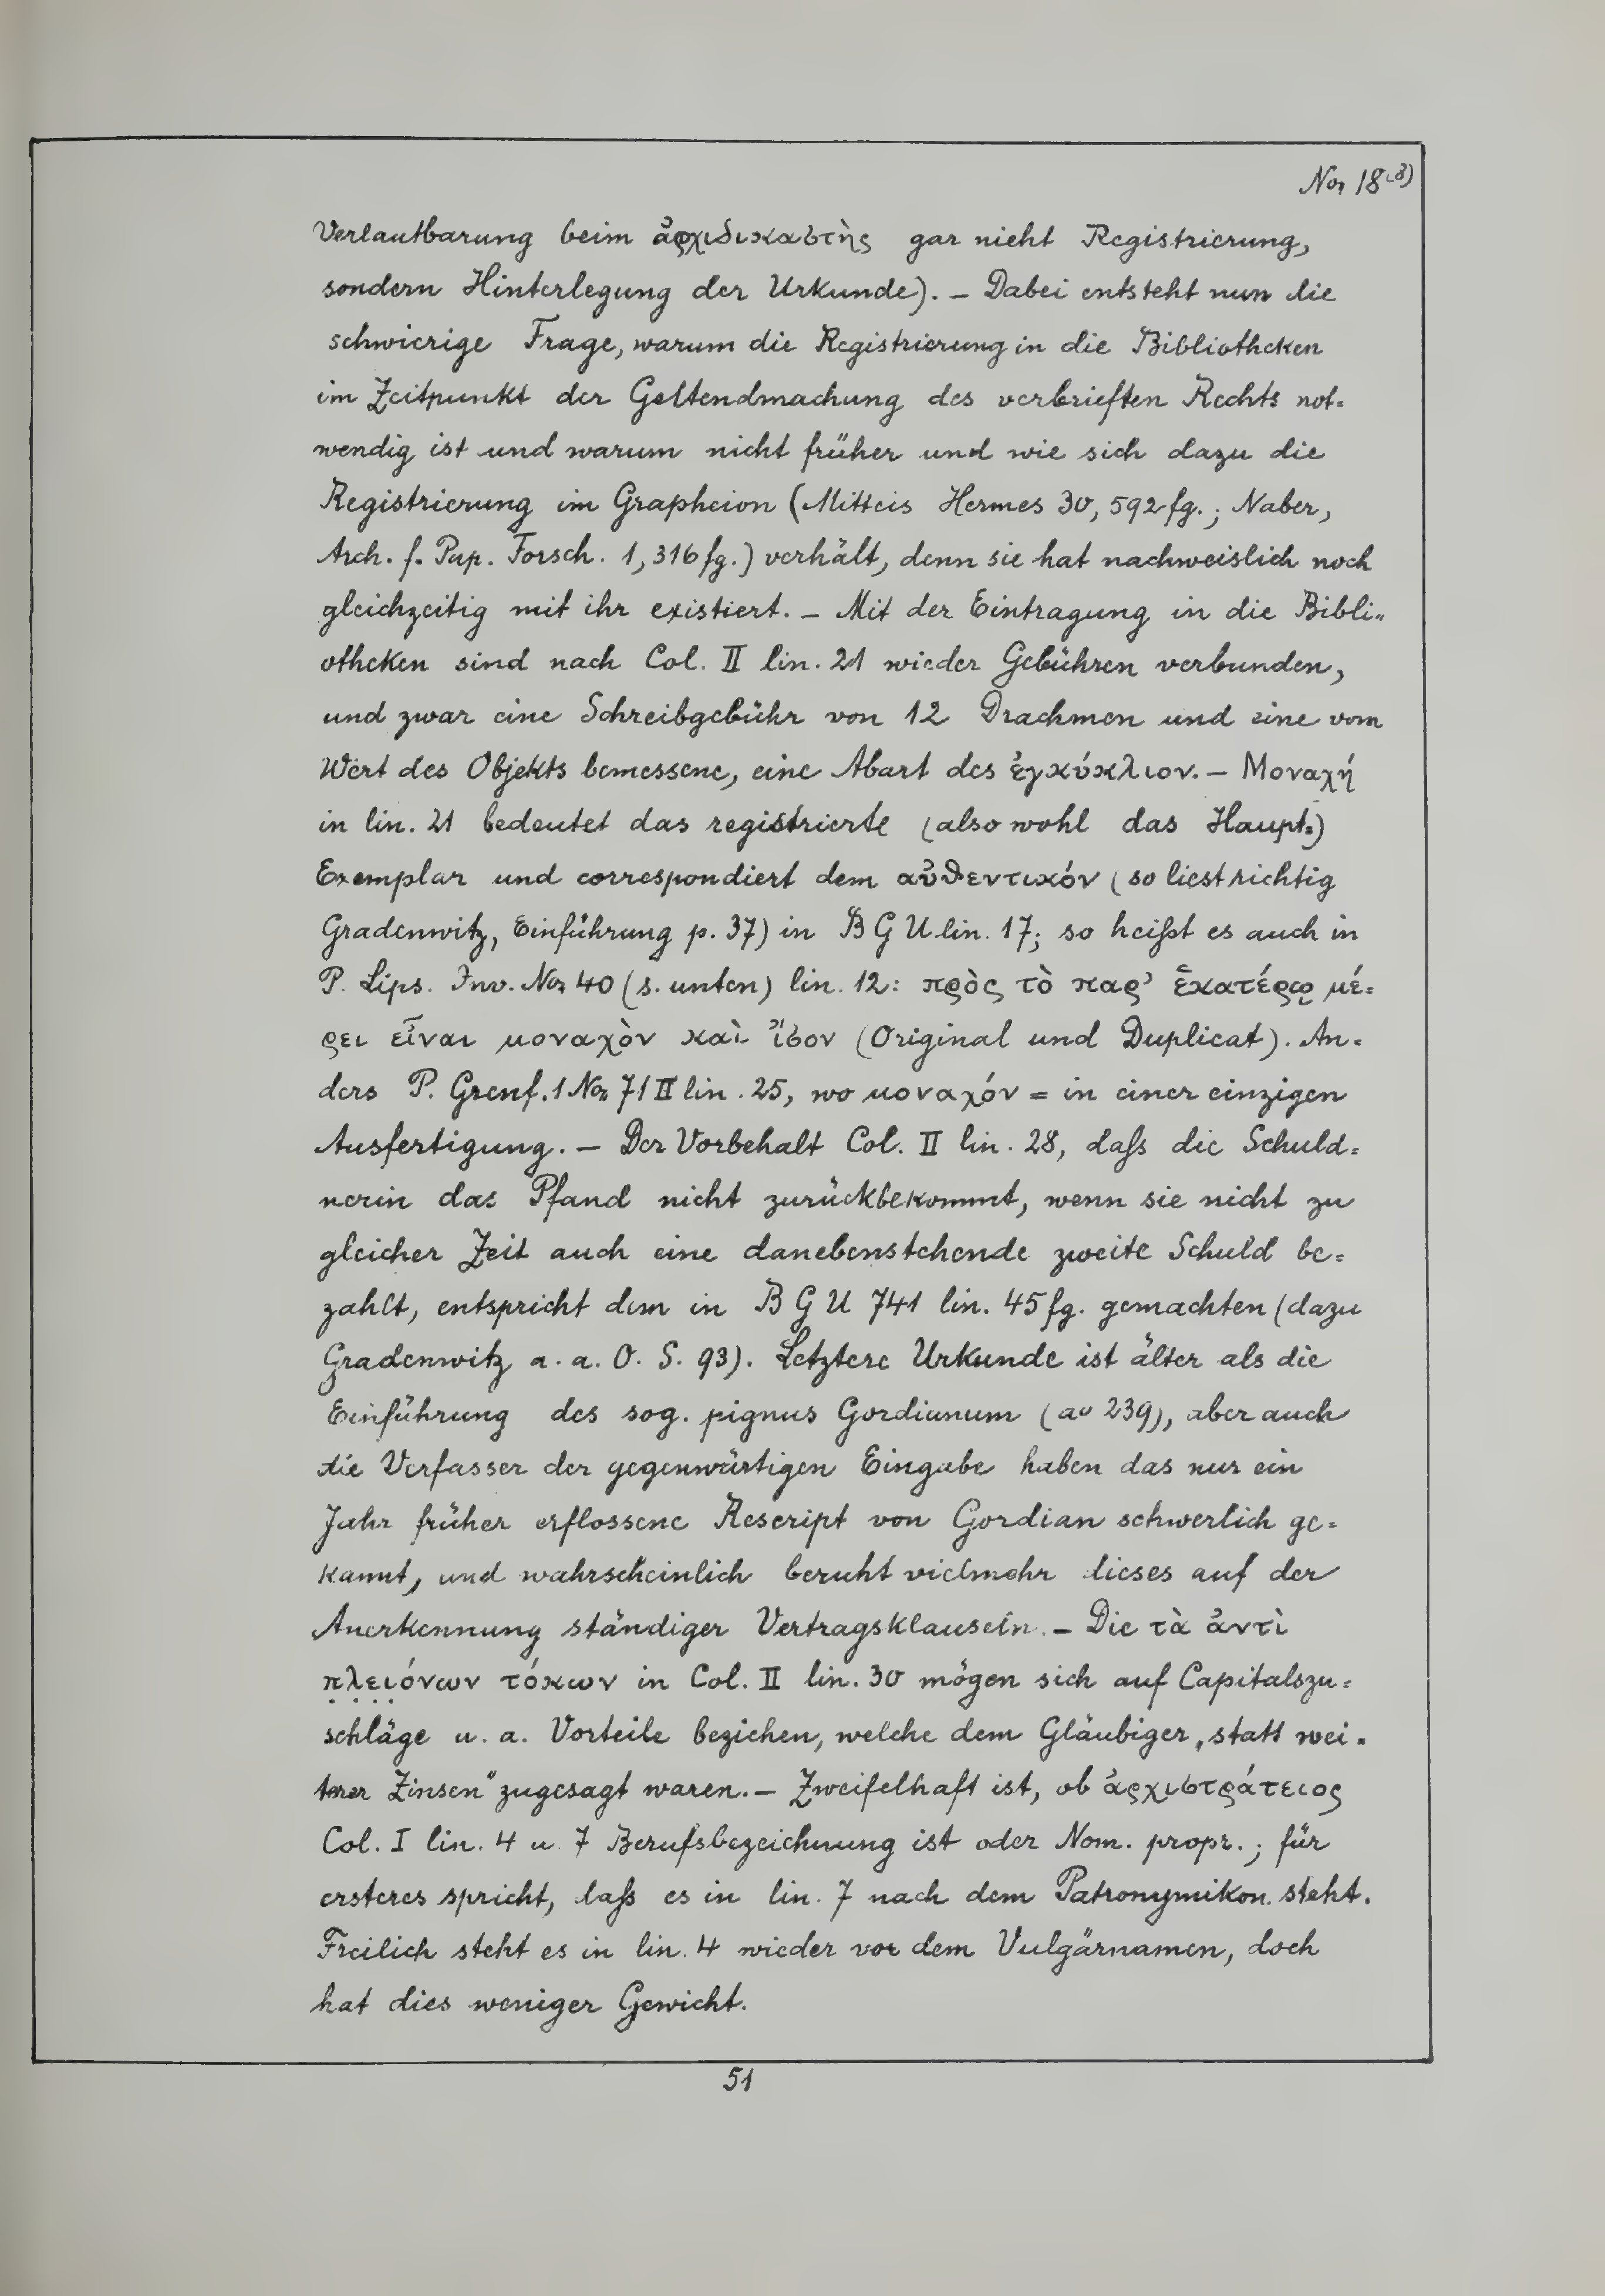 No, 18(3)
Verlautbarung beim ἀρχιδικαστὴς gar nicht Registrierung,
sondern Hinterlegung der Urkunde). – Dabei entsteht nun die
schwierige Frage, warum die Registrierung in die Bibliotheken
im Zeitpunkt der Geltendmachung des verbrieften Rechts not=
wendig ist und warum nicht früher und wie sich dazu die
Registrierung im Grapheion (Mitteis Hermes 30, 592 fg.; Naber,
Arch. f. Pap. Forsch. 1, 316 fg.) verhält, denn sie hat nachweislich noch
gleichzeitig mit ihr existiert. – Mit der Eintragung in die Bibli=
otheken sind nach Col. II lin. 21 wieder Gebühren verbunden,
und zwar eine Schreibgebühr von 12 Drachmen und eine vom
Wert des Objekts bemessene, eine Abart des ἐγκύκλιον. – Μοναχή
in lin. 21 bedeutet das registrierte (also wohl das Haupt=)
Exemplar und correspondiert dem αὐθεντικόν (so liest richtig
Gradenwitz, Einführung p. 37) in B G U lin. 17; so heißt es auch in
P. Lips. Inv. No, 40 (s. unten) lin. 12: πρὸς τὸ παρ' ἑκατέρῳ μέ=
ρει εἶναι μοναχὸν καὶ ἴσον (Original und Duplicat). An=
ders P. Grenf. 1 No, 71 II lin. 25, wo μοναχόν = in einer einzigen
Ausfertigung. – Der Vorbehalt Col. II lin. 28, daß die Schuld=
nerin das Pfand nicht zurückbekommt, wenn sie nicht zu
gleicher Zeit auch eine danebenstehende zweite Schuld be=
zahlt, entspricht dem in B G U 741 lin. 45 fg. gemachten (dazu
Gradenwitz a. a. O. S. 93). Letztere Urkunde ist älter als die
Einführung des sog. pignus Gordianum (ao 239), aber auch
die Verfasser der gegenwärtigen Eingabe haben das nur ein
Jahr früher erflossene Rescript von Gordian schwerlich ge=
kannt, und wahrscheinlich beruht vielmehr dieses auf der
Anerkennung ständiger Vertragsklauseln. – Die τὰ ἀντὶ
πλειόνων τόκων in Col. II lin. 30 mögen sich auf Capitalszu=
schläge u. a. Vorteile beziehen, welche dem Gläubiger „statt wei=
terer Zinsen" zugesagt waren. – Zweifelhaft ist, ob ἀρχιστράτειος
Col. I lin. 4 u 7 Berufsbezeichnung ist oder Nom. propr.; für
ersteres spricht, daß es in lin. 7 nach dem Patronymikon steht.
Freilich steht es in lin. 4 wieder vor dem Vulgärnamen, doch
hat dies weniger Gewicht.
51